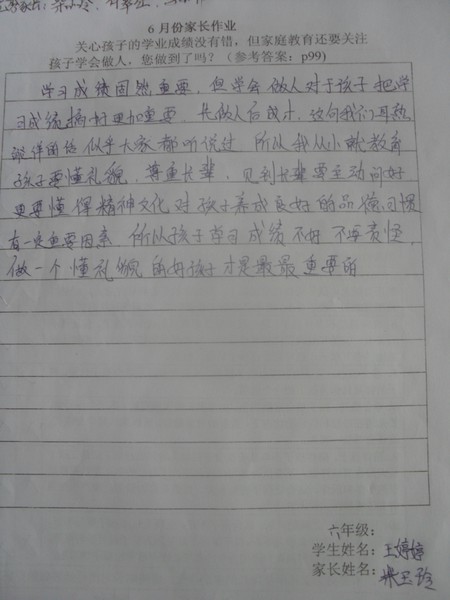 6月份家长作业
关心孩子的学业成绩没有错，但家庭教育还要关注
孩子学会做人，您做到了吗？（参考答案：p99)
学习成绩固然重要，但学会做人对于孩子把学
习成绩搞好更加重要，先做人后成才，这句我们耳熟
能详的话似乎大家都听说过，所以我从小就教育
孩子要懂礼貌，尊重长辈，见到长辈要主动问好
更要懂得精神文化对孩子养成良好的品德习惯
有一定重要因素，所以孩子学习成绩不好不要责怪，
做一个懂礼貌的好孩子才是最最重要的
六年级：
学生姓名：王婷婷
家长姓名：